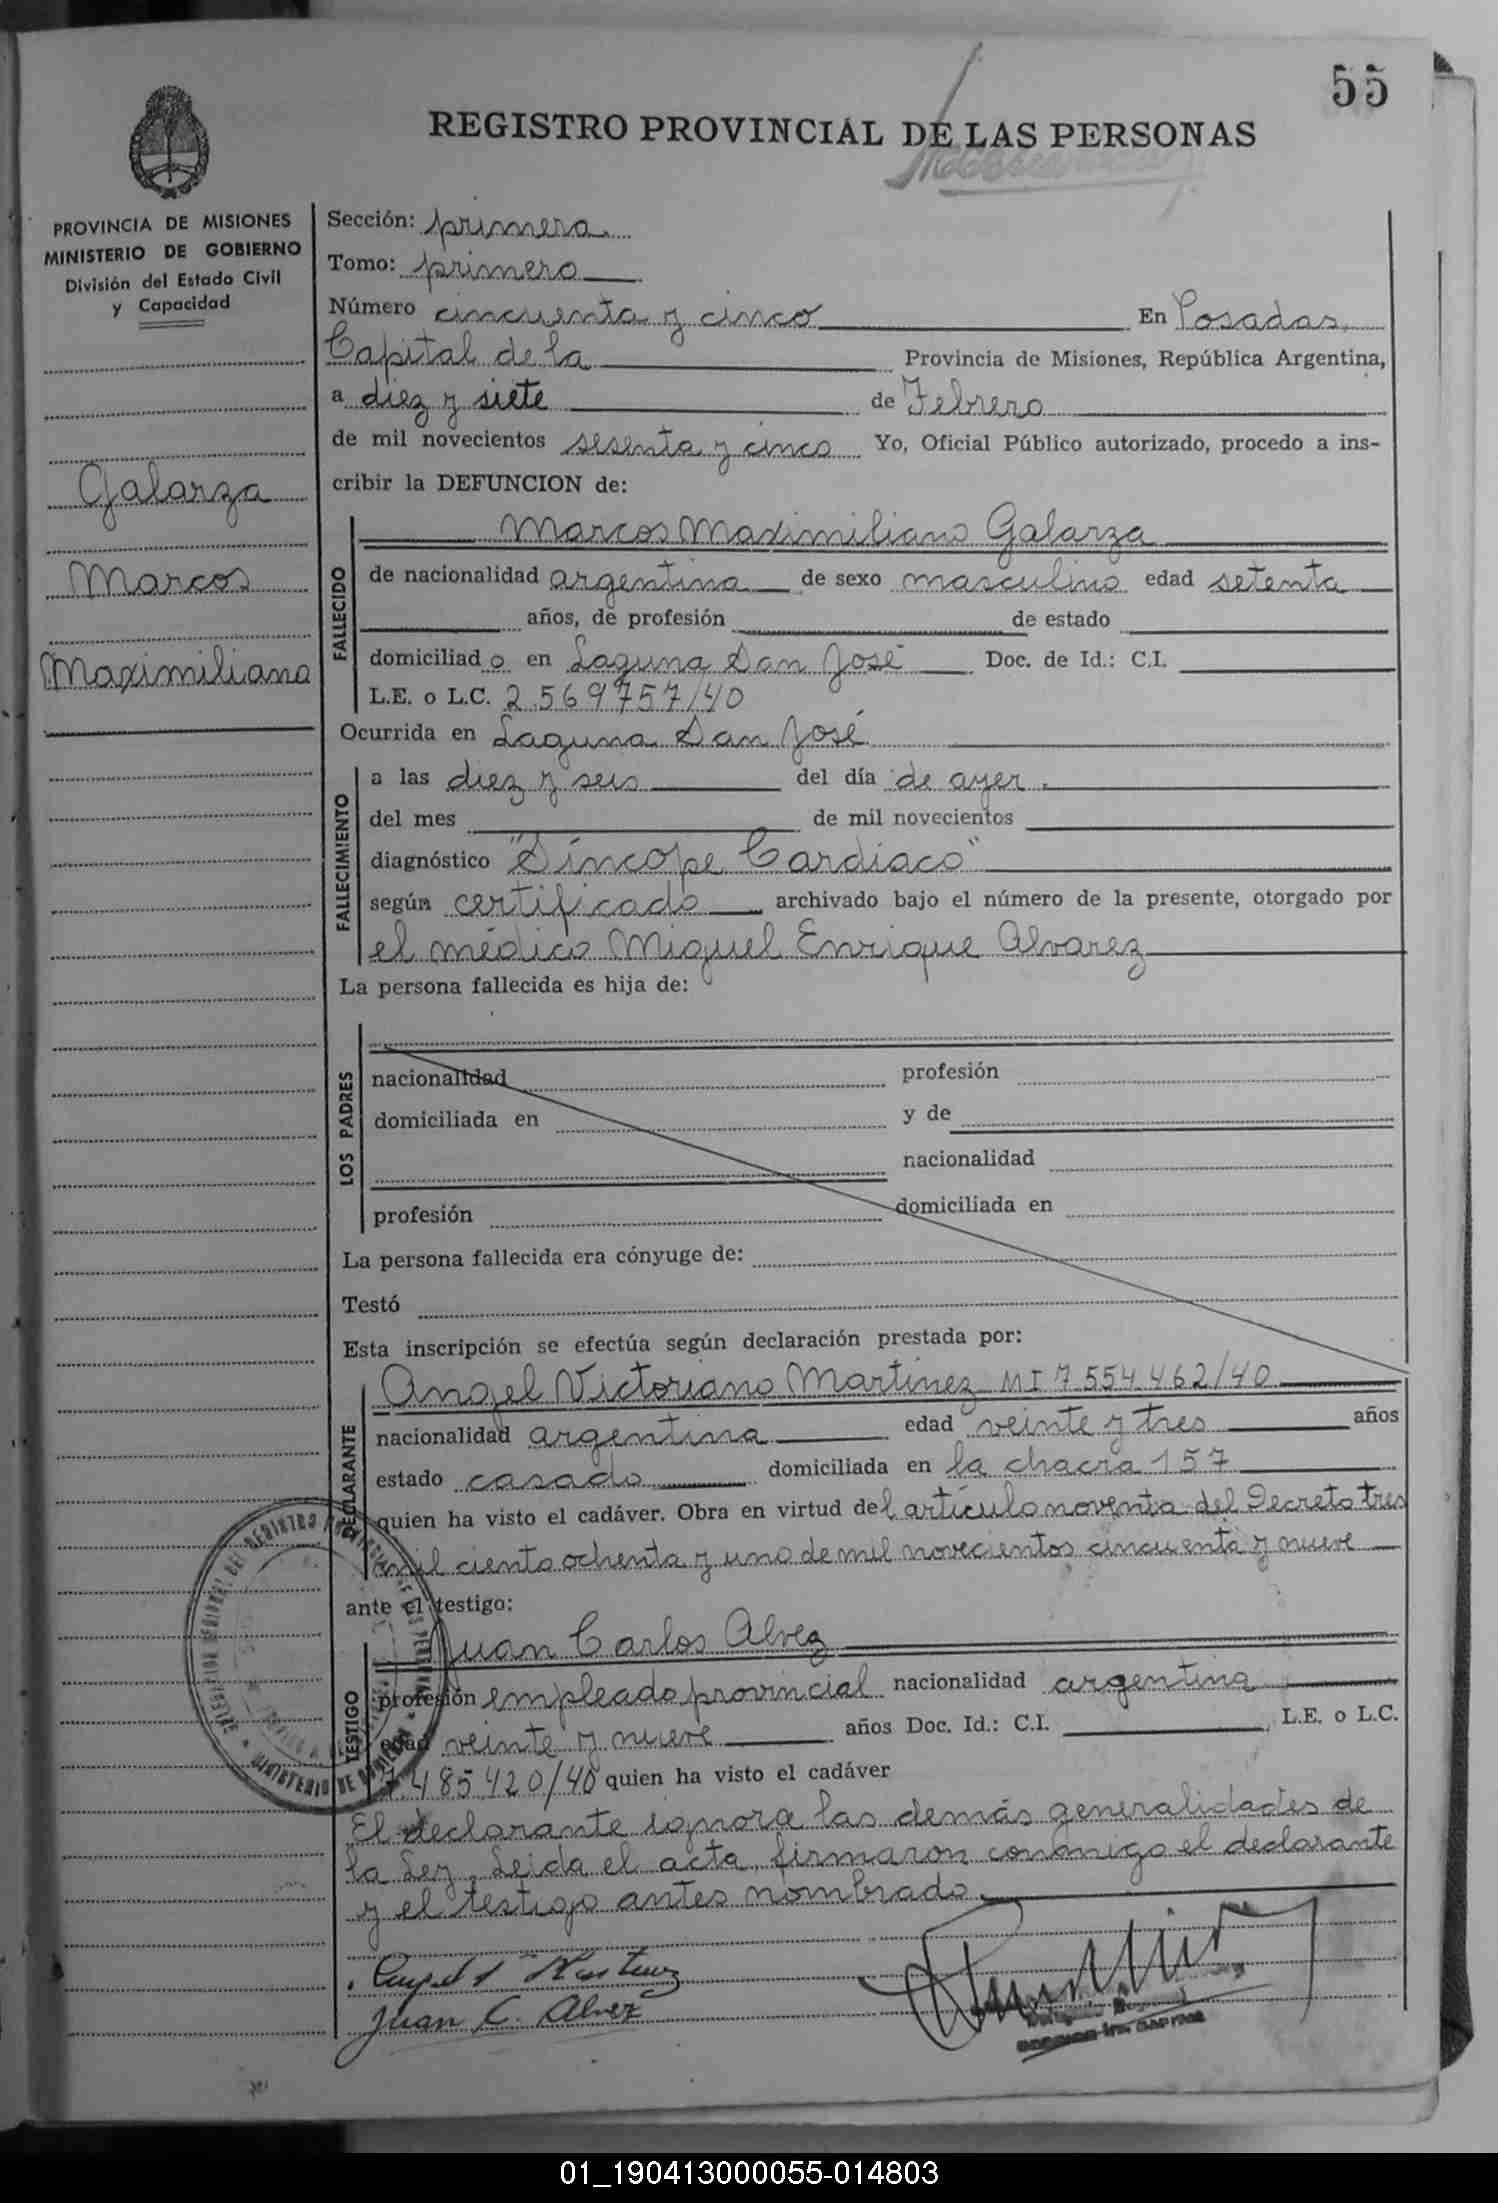 55
REGISTRO PROVINCIAL DE LAS PERSONAS
PROVINCIA DE MISIONES
MINISTERIO DE GOBIERNO
División del Estado Civil
y Capacidad
Galarza
Marcos
Maximiliano
Sección: primera
Tomo: primero
Número cincuenta y cinco En Posadas,
Capital de la Provincia de Misiones, República Argentina,
a diez y siete de Febrero
de mil novecientos sesenta y cinco Yo, Oficial Público autorizado, procedo a ins-
cribir la DEFUNCION de:
FALLECIDO
Marcos Maximiliano Galarza
de nacionalidad argentina de sexo masculino edad setenta
años, de profesión de estado
domiciliado en Laguna San José Doc. de Id.: C.I.
L.E. o L.C. 2.569757/40
Ocurrida en Laguna San José
FALLECIMIENTO
a las diez y seis del día de ayer.
del mes de mil novecientos
diagnóstico "Síncope Cardiaco"
según certificado archivado bajo el número de la presente, otorgado por
el médico Miguel Enrique Alvarez
La persona fallecida es hija de:
LOS PADRES
nacionalidad profesión
domiciliada en y de
nacionalidad
profesión domiciliada en
La persona fallecida era cónyuge de:
Testó
Esta inscripción se efectúa según declaración prestada por:
DECLARANTE
Angel Victoriano Martinez MI 7.554.462/40
nacionalidad argentina edad veinte y tres años
estado casado domiciliada en la chacra 157
quien ha visto el cadáver. Obra en virtud del artículo noventa del Decreto tres
mil ciento ochenta y uno de mil novecientos cincuenta y nueve
ante el testigo:
TESTIGO
Juan Carlos Alvez
profesión empleado provincial nacionalidad argentina
edad veinte y nueve años Doc. Id.: C.I. L.E. o L.C.
7.485420/40 quien ha visto el cadáver
El declarante ignora las demás generalidades de
la Ley. Leida el acta, firmaron conmigo el declarante
y el testigo antes nombrado.
Angel V Martinez
Juan C. Alvez
MINISTERIO DE GOBIERNO
01_190413000055-014803